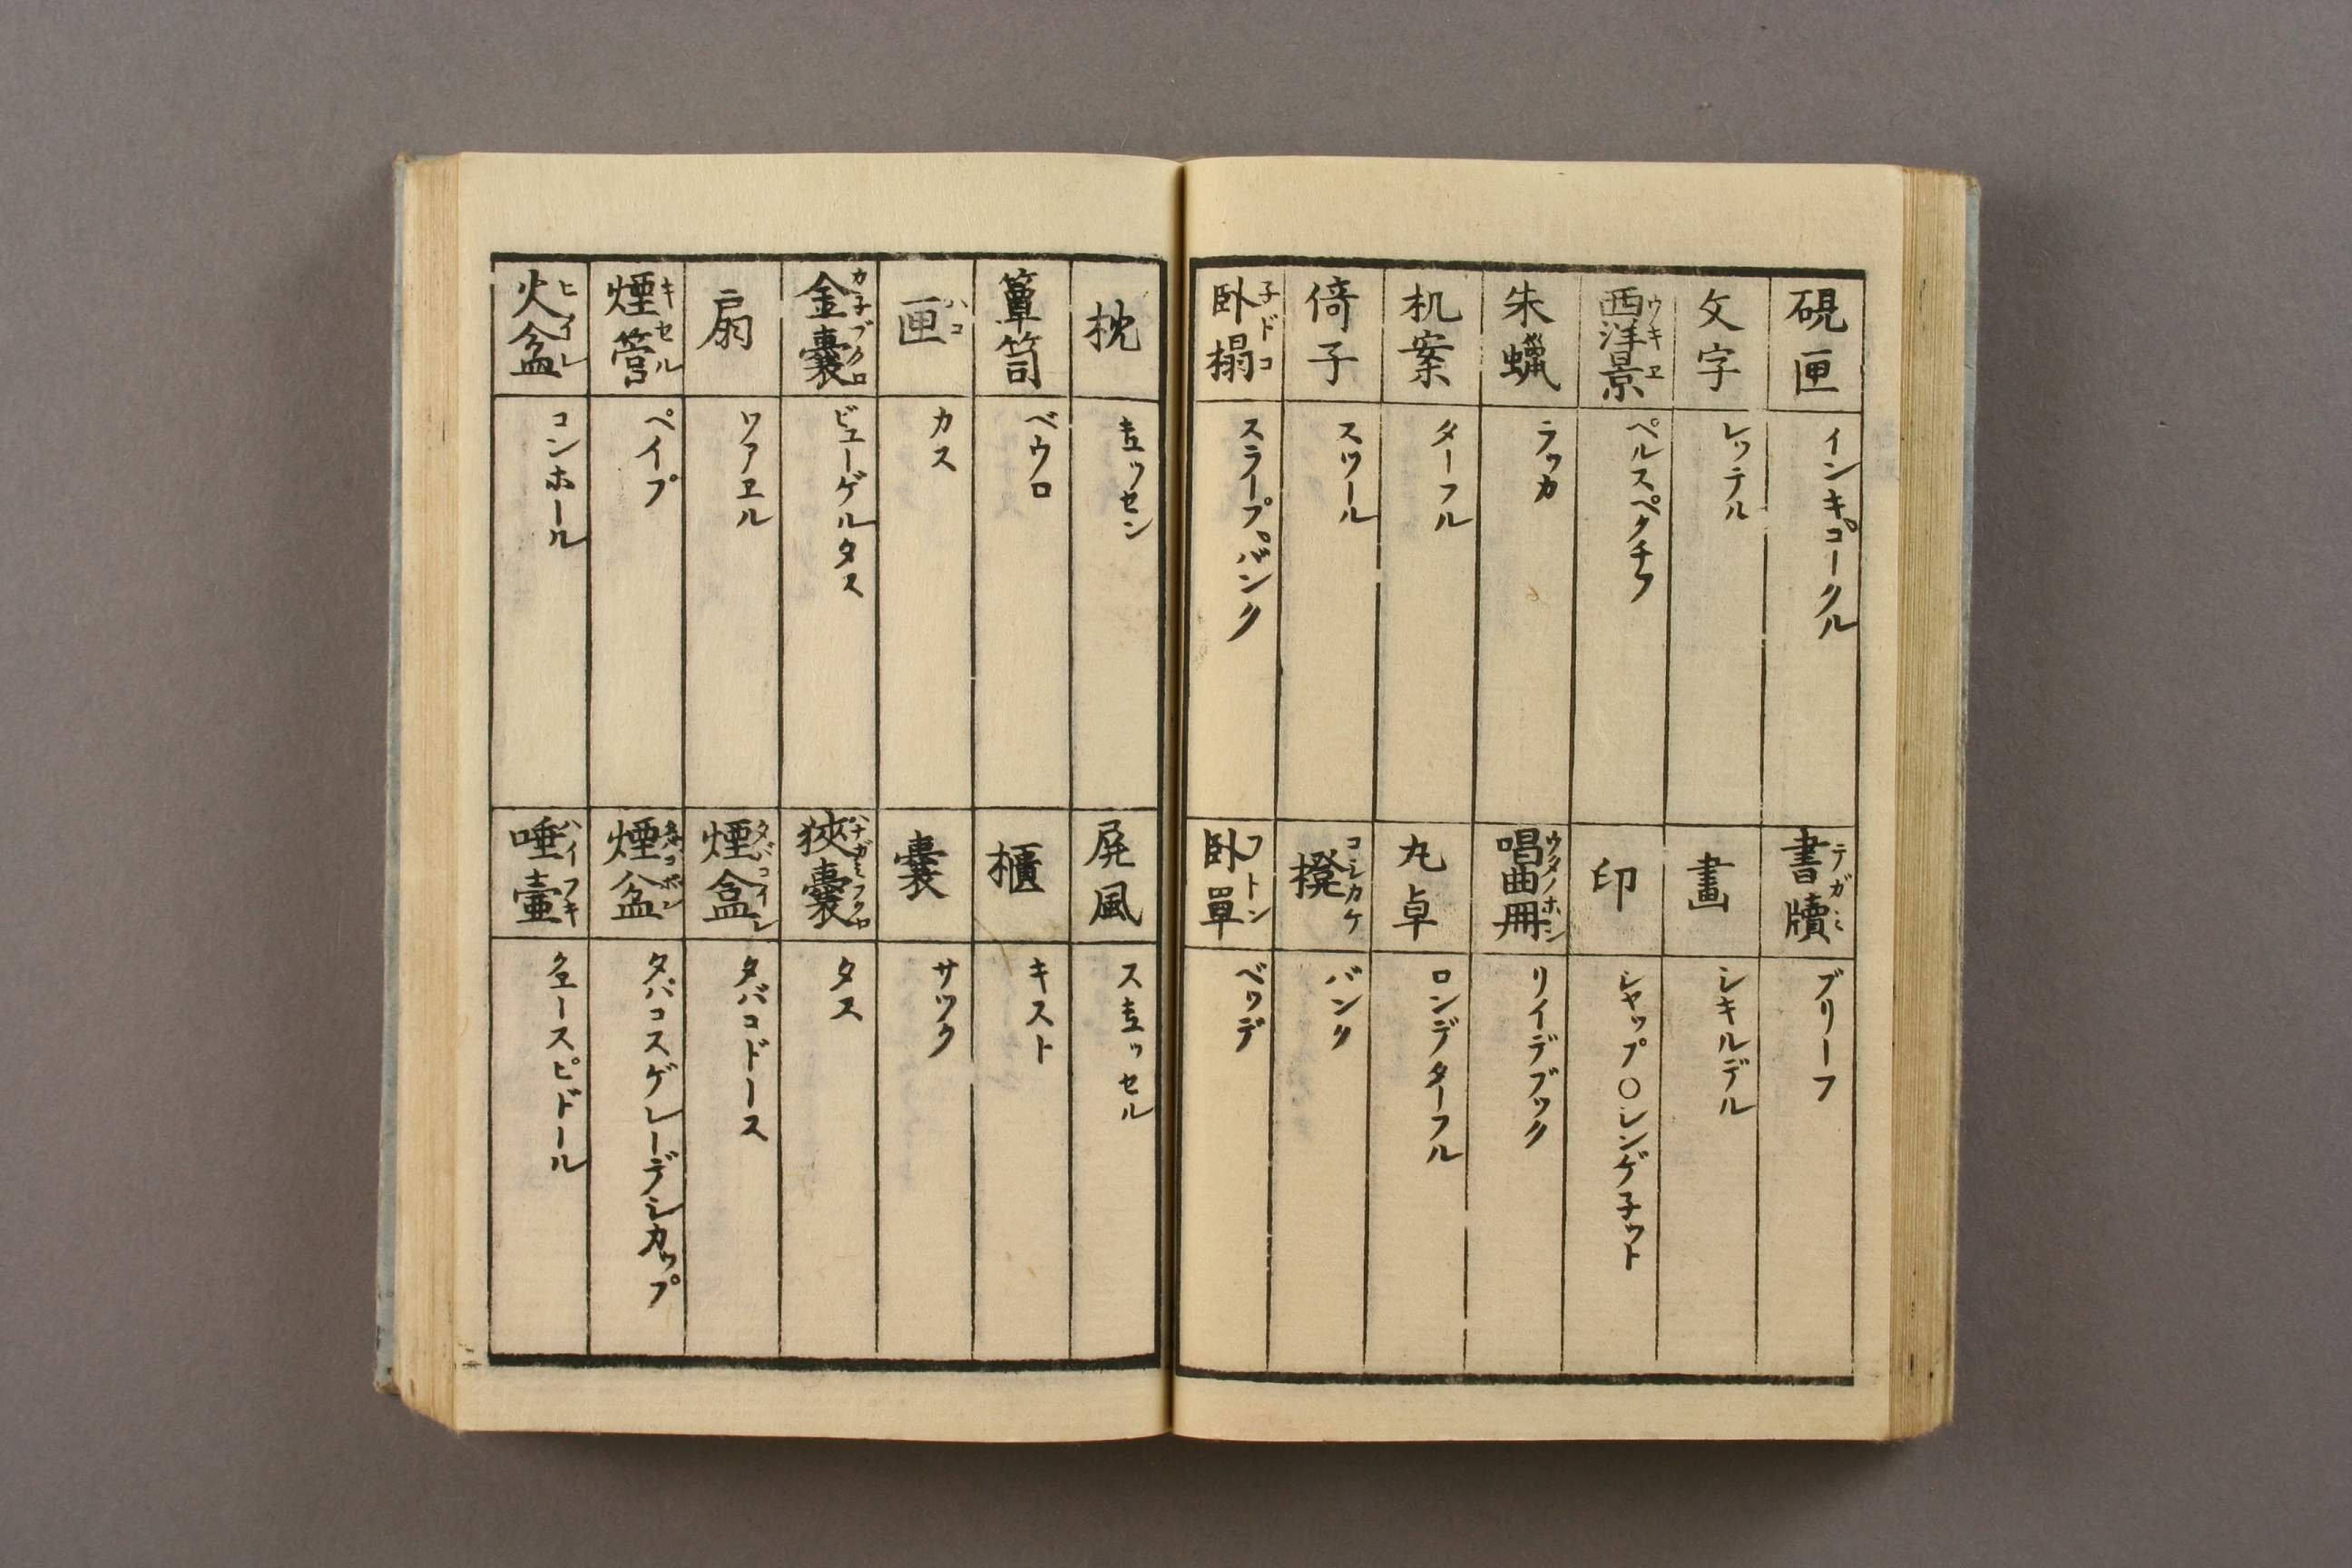 硯匣 インキコークル
書牘 テガミ ブリーフ
文字 レッテル
畫 シキルデル
西洋景 ウキヱ ペルスペクチフ
印 シャップ○レンゲ子ット
朱蠟 ラッカ
唱曲冊 ウタノホン リイデブック
机案 ターフル
丸卓 ロンデターフル
倚子 スツール
櫈 コシカケ バンク
臥榻 子ドコ スラープバンク
臥單 フトン ベッデ
枕
屏風
簞笥 ベウロ
櫃 キスト
匣 ハコ カス
嚢 サック
金嚢 カ子ブクロ ビューゲルタス
狹嚢 ハナガミフクロ タス
扇 ワアヱル
煙盒 タバコイレ タバコドース
煙管 キセル ペイプ
煙盆 タバコボン タバコスゲレーデシカップ
火盆 ヒイレ コンホール
唾壷 ハイフキ クヱースピドール